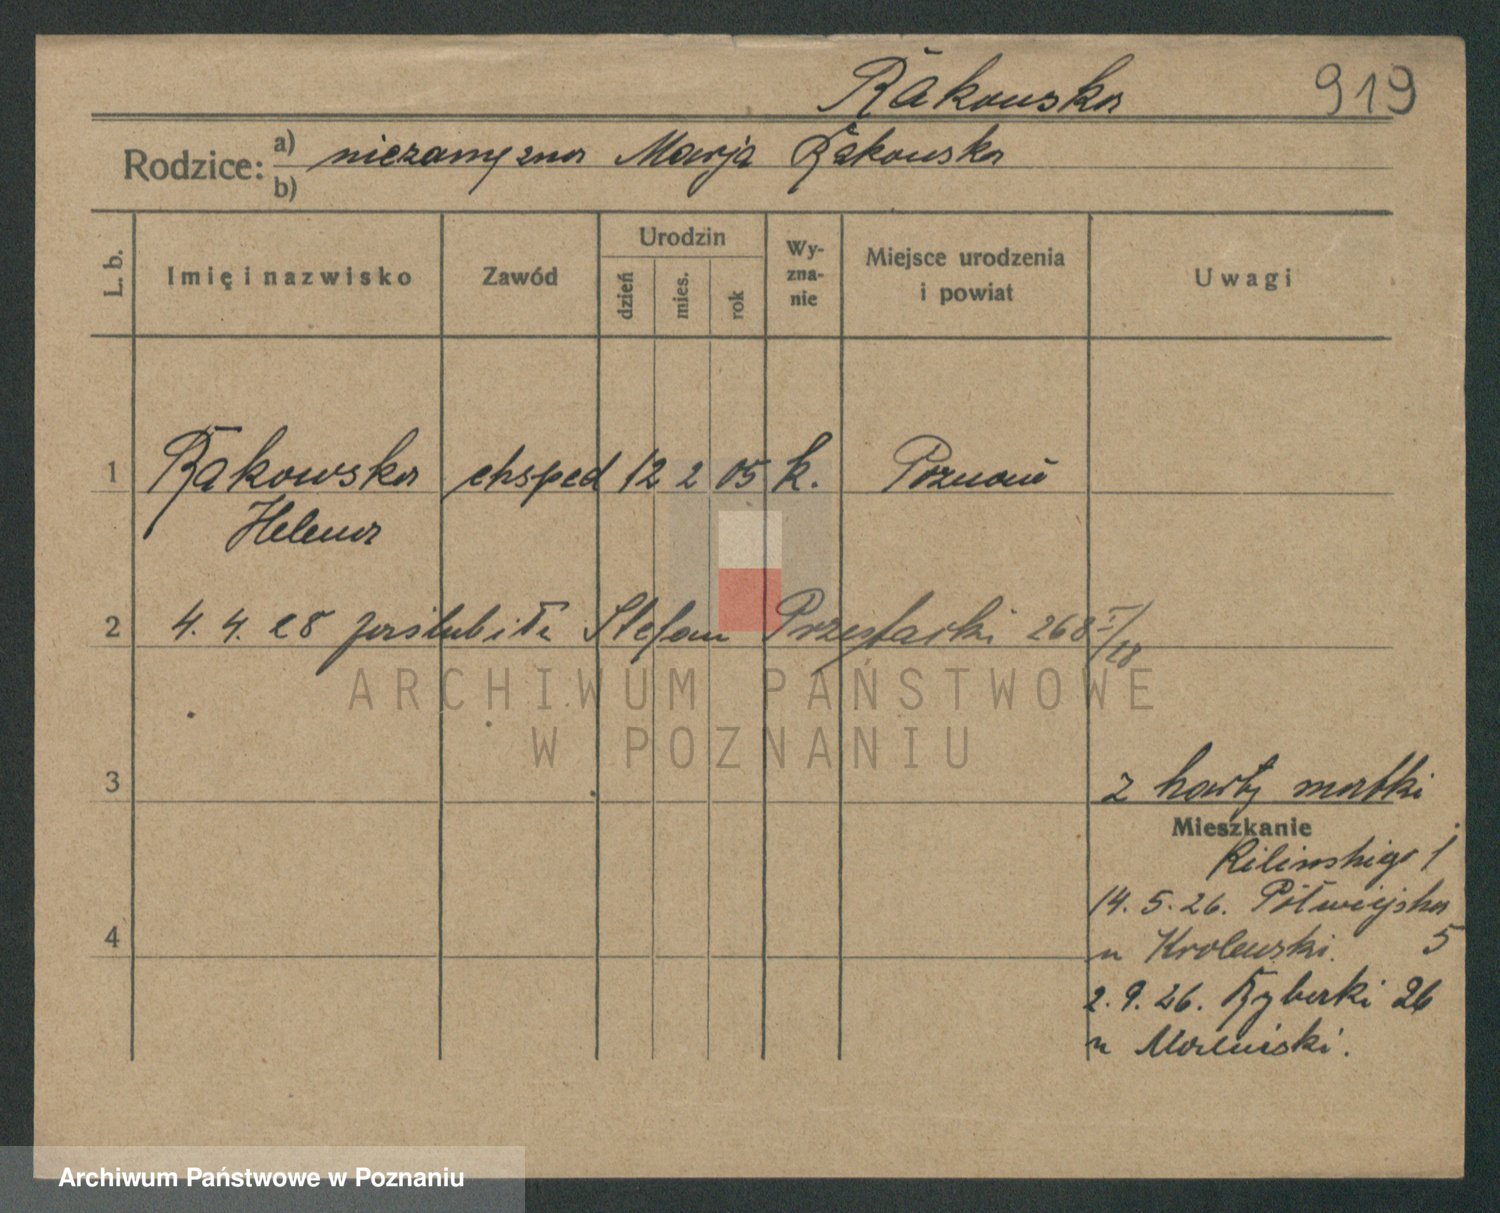 Rąkowska 919
Rodzice: a) niezamężna Marja Rąkowska
b)
L. b. Imię i nazwisko Zawód Urodzin dzień mies. rok Wy-zna-nie Miejsce urodzenia i powiat Uwagi
1 Rąkowska eksped 12 2 05 k. Poznań
Helena
2 4. 4. 28 zaślubiła Stefan 268 I/28
ARCHIWUM PAŃSTWOWE
W POZNANIU
3 z karty matki
Mieszkanie
Kilinskiego 1
14. 5. 26. Półwiejska 5
4 u Krolewski.
2. 9. 26. Rybaki 26
u
Archiwum Państwowe w Poznaniu